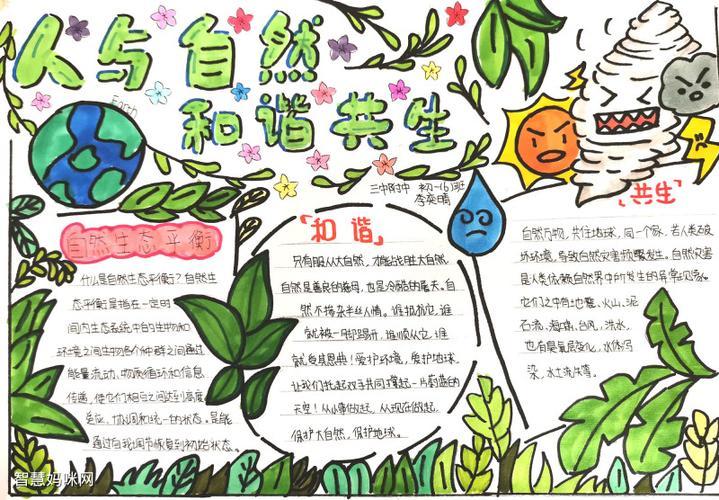 人与自然
和谐共生
Earth
三中附中 初一(6)班
李奕晴
自然生态平衡
什么是自然生态平衡?自然生
态平衡是指在一定时
间内生态系统中的生物和
环境之间生物各个种群之间通过
能量流动、物质循环和信息
传递,使它们相互之间达到高度
适应、协调和统一的状态。是能
通过自我调节恢复到初始状态。
「和谐」
只有服从大自然,才能战胜大自然
自然是善良的慈母,也是冷酷的屠夫。自
然不掺杂半丝人情。谁抗拒它,谁
就被一脚踢开,谁顺从它,谁
就受其恩典!爱护环境,爱护地球
让我们托起双手共同撑起一片蔚蓝的
天空!从小事做起,从现在做起,
保护大自然,保护地球。
「共生」
自然万物,共住地球,同一个家,若人类破
坏环境,导致自然灾害频繁发生。自然灾害
是人类依赖自然界中所发生的异常现象。
它们之中有地震、火山、泥
石流、海啸、台风、洪水,
也有臭氧层变化、水体污
染、水土流失等。
智慧妈咪网